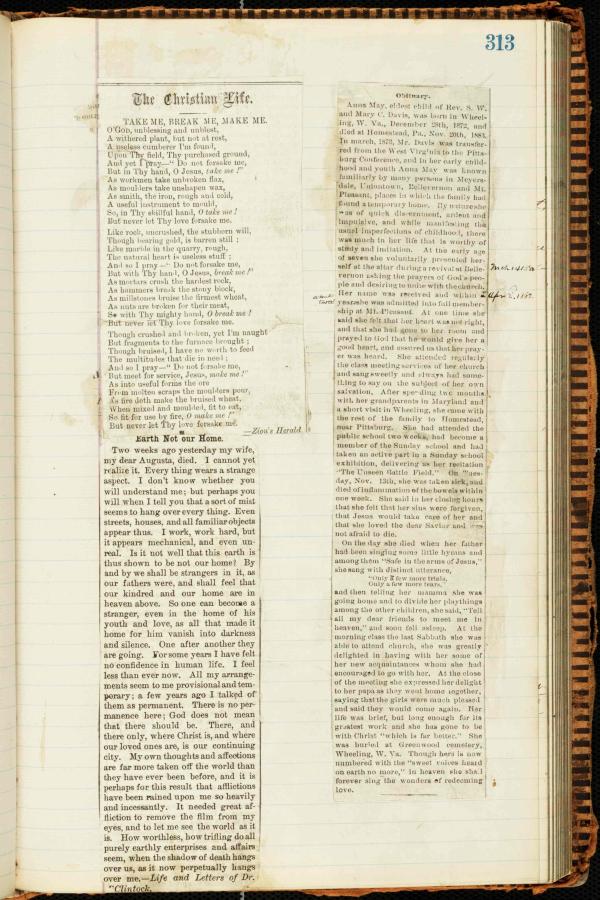 313
The Christian Life.
TAKE ME, BREAK ME, MAKE ME.
O God, unblessing and unblest,
A withered plant, but not at rest,
A useless cumberer I'm found,
Upon Thy field, Thy purchased ground,
And yet I pray—" Do not forsake me,
But in Thy hand, O Jesus, take me!"
As workmen take unbroken flax,
As moulders take unshapen wax,
As smith, the iron, rough and cold,
A useful instrument to mould,
So, in Thy skillful hand, O take me!
But never let Thy love forsake me.
Like rock, uncrushed, the stubborn will,
Though bearing gold, is barren still;
Like marble in the quarry, rough,
The natural heart is useless stuff;
And so I pray—" Do not forsake me,
But with Thy hand, O Jesus, break me!"
As mortars crush the hardest rock,
As hammers break the stony block,
As millstones bruise the firmest wheat,
As nuts are broken for their meat,
So with Thy mighty hand, O break me!
But never let Thy love forsake me.
Though crushed and broken, yet I'm naught
But fragments to the furnace brought;
Though bruised, I have no worth to feed
The multitudes that die in need;
And so I pray—" Do not forsake me,
But meet for service, Jesus, make me!"
As into useful forms the ore
From molten scraps the moulders pour,
As fire doth make the bruised wheat,
When mixed and moulded, fit to eat,
So fit for use by fire, O make me!"
But never let Thy love forsake me.
—Zion's Herald
Earth Not our Home.
Two weeks ago yesterday my wife,
my dear Augusta, died. I cannot yet
realize it. Every thing wears a strange
aspect. I don't know whether you
will understand me; but perhaps you
will when I tell you that a sort of mist
seems to hang over every thing. Even
streets, houses, and all familiar objects
appear thus. I work, work hard, but
it appears mechanical, and even un-
real. Is it not well that this earth is
thus shown to be not our home? By
and by we shall be strangers in it, as
our fathers were, and shall feel that
our kindred and our home are in
heaven above. So one can become a
stranger, even in the home of his
youth and love, as all that made it
home for him vanish into darkness
and silence. One after another they
are going. For some years I have felt
no confidence in human life. I feel
less than ever now. All my arrange-
ments seem to me provisional and tem-
porary; a few years ago I talked of
them as permanent. There is no per-
manence here; God does not mean
that there should be. There, and
there only, where Christ is, and where
our loved ones are, is our continuing
city. My own thoughts and affections
are far more taken off the world than
they have ever been before, and it is
perhaps for this result that afflictions
have been rained upon me so heavily
and incessantly. It needed great af-
fliction to remove the film from my
eyes, and to let me see the world as it
is. How worthless, how trifling do all
purely earthly enterprises and affairs
seem, when the shadow of death hangs
over us, as it now perpetually hangs
over me.—Life and Letters of Dr.
"Clintock.
Obituary.
Anna May, eldest child of Rev. S. W.
and Mary C. Davis, was born in Wheel-
ing, W. Va., December 28th, 1872, and
died at Homestead, Pa., Nov. 20th, 1883.
In march, 1873, Mr. Davis was transfer-
red from the West Virginia to the Pitts-
burg Conference, and in her early child-
hood and youth Anna May was known
familiarly by many persons in Meyers-
dale, Uniontown, Bellevernon and Mt.
Pleasant, places in which the family had
found a temporary home. By nature she
was of quick discernment, ardent and
impulsive, and while manifesting the
usual imperfections of childhood, there
was much in her life that is worthy of
study and imitation. At the early age
of seven she voluntarily presented her-
self at the altar during a revival at Belle-
vernon asking the prayers of God's peo-
ple and desiring to unite with the church.
Her name was received and within
years she was admitted into full member-
ship at Mt. Pleasant. At one time she
said she felt that her heart was not right,
and that she had gone to her room and
prayed to God that he would give her a
good heart, and assured us that her pray-
er was heard. She attended regularly
the class meeting services of her church
and sang sweetly and always had some-
thing to say on the subject of her own
salvation. After spending two months
with her grandparents in Maryland and
a short visit in Wheeling, she came with
the rest of the family to Homestead,
near Pittsburg. She had attended the
public school two weeks, had become a
member of the Sunday school and had
taken an active part in a Sunday school
exhibition, delivering as her recitation
"The Unseen Battle Field." On Tues-
day, Nov. 13th, she was taken sick, and
died of inflammation of the bowels within
one week. She said in her closing hours
that she felt that her sins were forgiven,
that Jesus would take care of her and
that she loved the dear Savior and was
not afraid to die.
On the day she died when her father
had been singing some little hymns and
among them "Safe in the arms of Jesus,"
she sang with distinct utterance,
"Only a few more trials,
Only a few more tears,"
and then telling her mamma she was
going home and to divide her playthings
among the other children, she said, "Tell
all my dear friends to meet me in
heaven," and soon fell asleep. At the
morning class the last Sabbath she was
able to attend church, she was greatly
delighted in having with her some of
her new acquaintances whom she had
encouraged to go with her. At the close
of the meeting she expressed her delight
to her papa as they went home together,
saying that the girls were much pleased
and said they would come again. Her
life was brief, but long enough for its
greatest work and she has gone to be
with Christ "which is far better." She
was buried at Greenwood cemetery,
Wheeling, W. Va. Though hers is now
numbered with the "sweet voices heard
on earth no more," in heaven she shall
forever sing the wonders of redeeming
love.